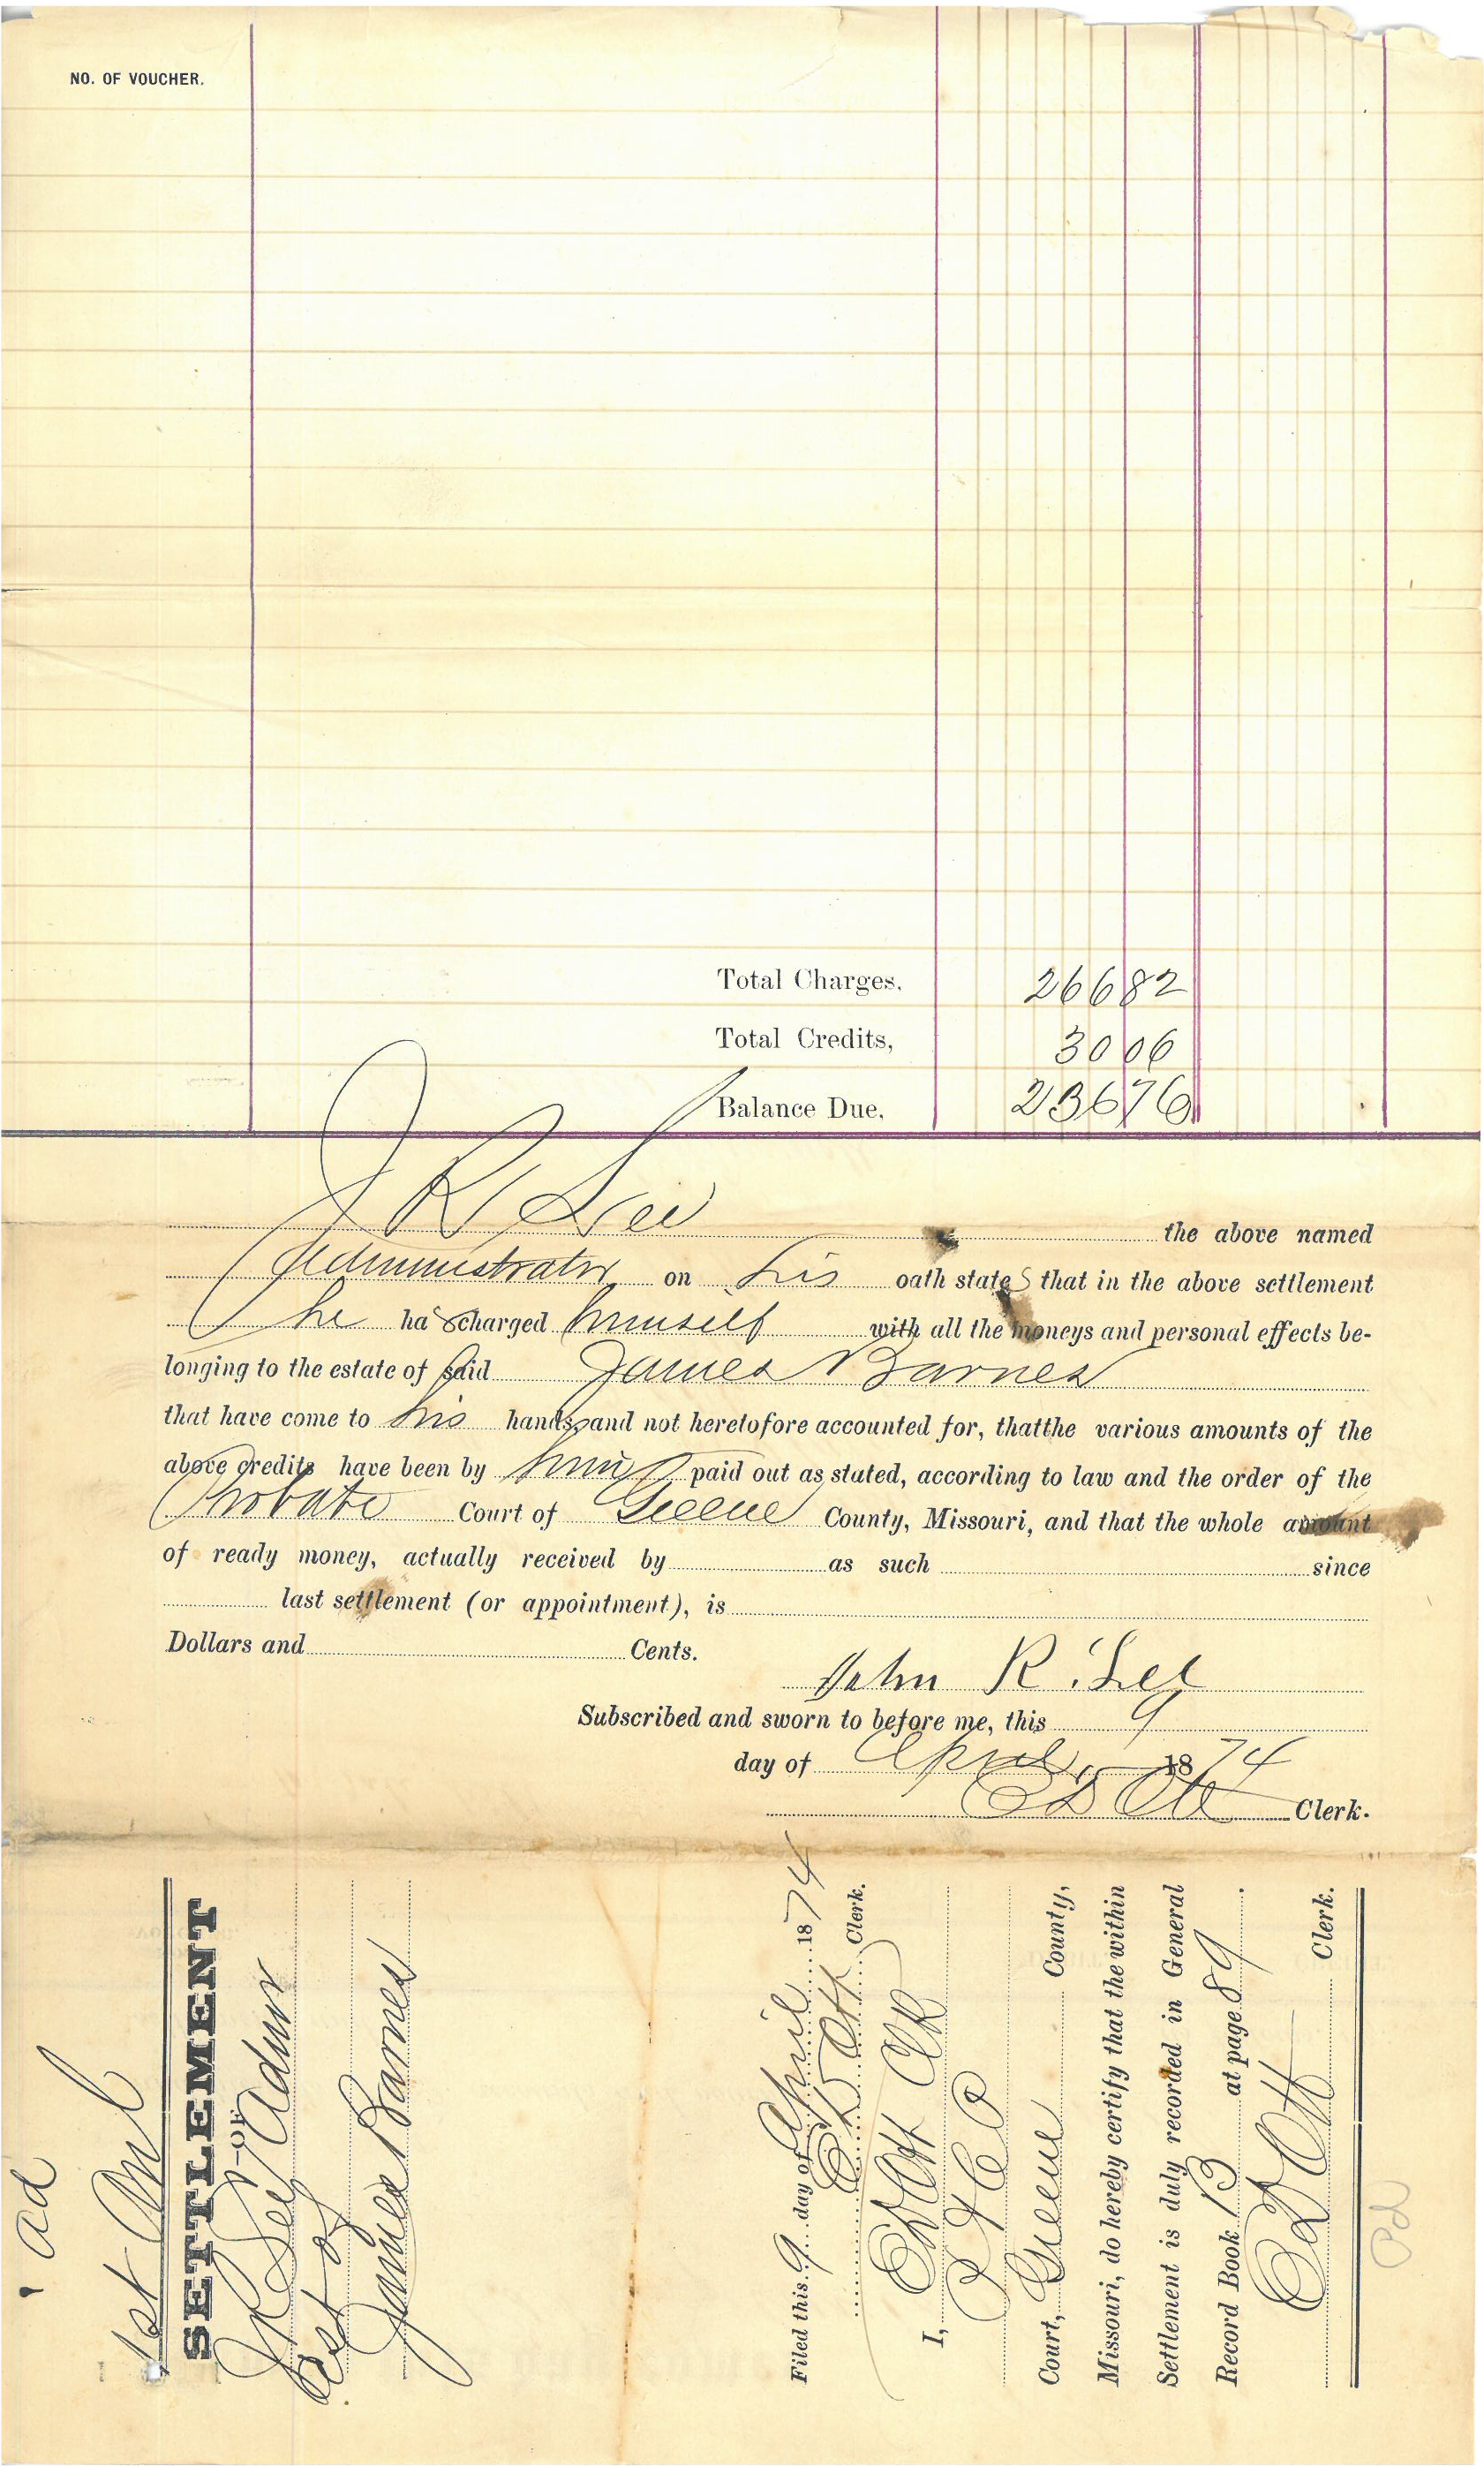 NO. OF VOUCHER.
Total Charges, 266 82
Total Credits, 30 06
Balance Due, 236 76
J R Lee the above named
Administrator on his oath states that in the above settlement
he has charged himself with all the moneys and personal effects be-
longing to the estate of said James Barnes
that have come to his hands, and not heretofore accounted for, thatthe various amounts of the
above credits have been by him paid out as stated, according to law and the order of the
Probate Court of Greene County, Missouri, and that the whole amount
of ready money, actually received by as such since
last settlement (or appointment), is
Dollars and Cents.
John R. Lee
Subscribed and sworn to before me, this 9
day of April 1874
E D Ott Clerk.
ad
1st Anl
SETTLEMENT
—OF—
J R Lee Admr
Est of
James Barnes
Filed this 9 day of April 1874
E D Ott Clerk.
I, E D Ott Clk
P & C
Court, Greene County,
Missouri, do hereby certify that the within
Settlement is duly recorded in General
Record Book 13 at page 89.
E D Ott Clerk.
Pd